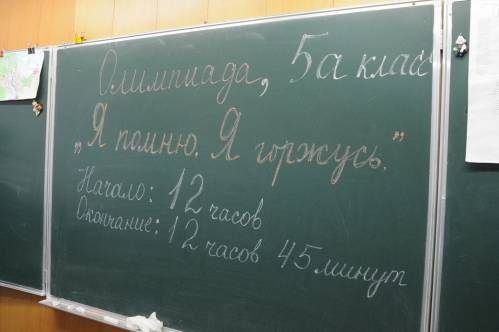 Олимпиада, 5а класс
„Я помню. Я горжусь."
Начало: 12 часов
Окончание: 12 часов 45 минут